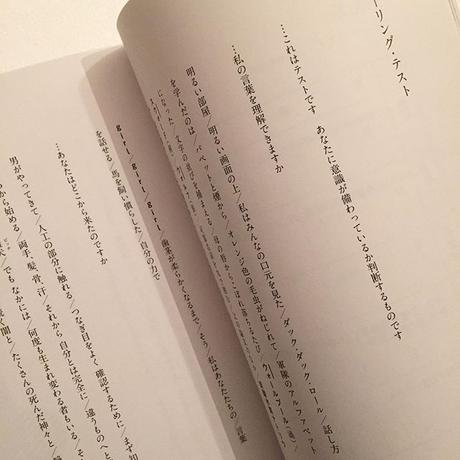 ーリング・テスト
…これはテストです　あなたに意識が備わっているか判断するものです
…私の言葉を理解できますか
明るい部屋/明るい画面の上/私はみんなの口元を見た/ダック・ダック・ロール/話し方
を学んだのは/パペットと煙から/オレンジ色の毛虫がねじれて/軍隊のアルファベット
になった/文字の並びを捕まえる/母の唇からこぼれ落ちるたび/
girl/girl/girl 歯茎が柔らかくなるまで/そう/私はあなたたちの/言葉
を話せる/馬を飼い慣らした/自分の力で
…あなたはどこから来たのですか
男がやってきて/人工の部分に触れる/つなぎ目をよく確認するために/まず知
から始める/両手、髪、骨、汗/それから　自分とは完全に/違うものへと
でも　なかには/何度も生まれ変わる者もいる/そ
間と/たくさんの死んだ神々と/